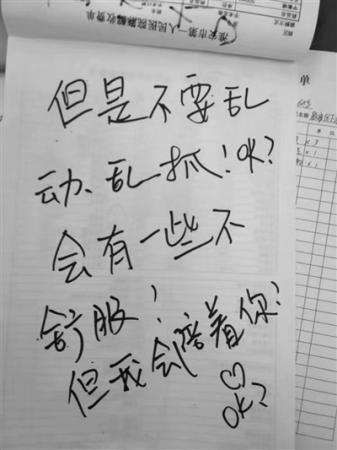 淮安市第一人民医院
收费单
单
但是不要乱
动、乱抓！OK？
会有一些不
舒服！
但我会陪着你！
♡
OK？